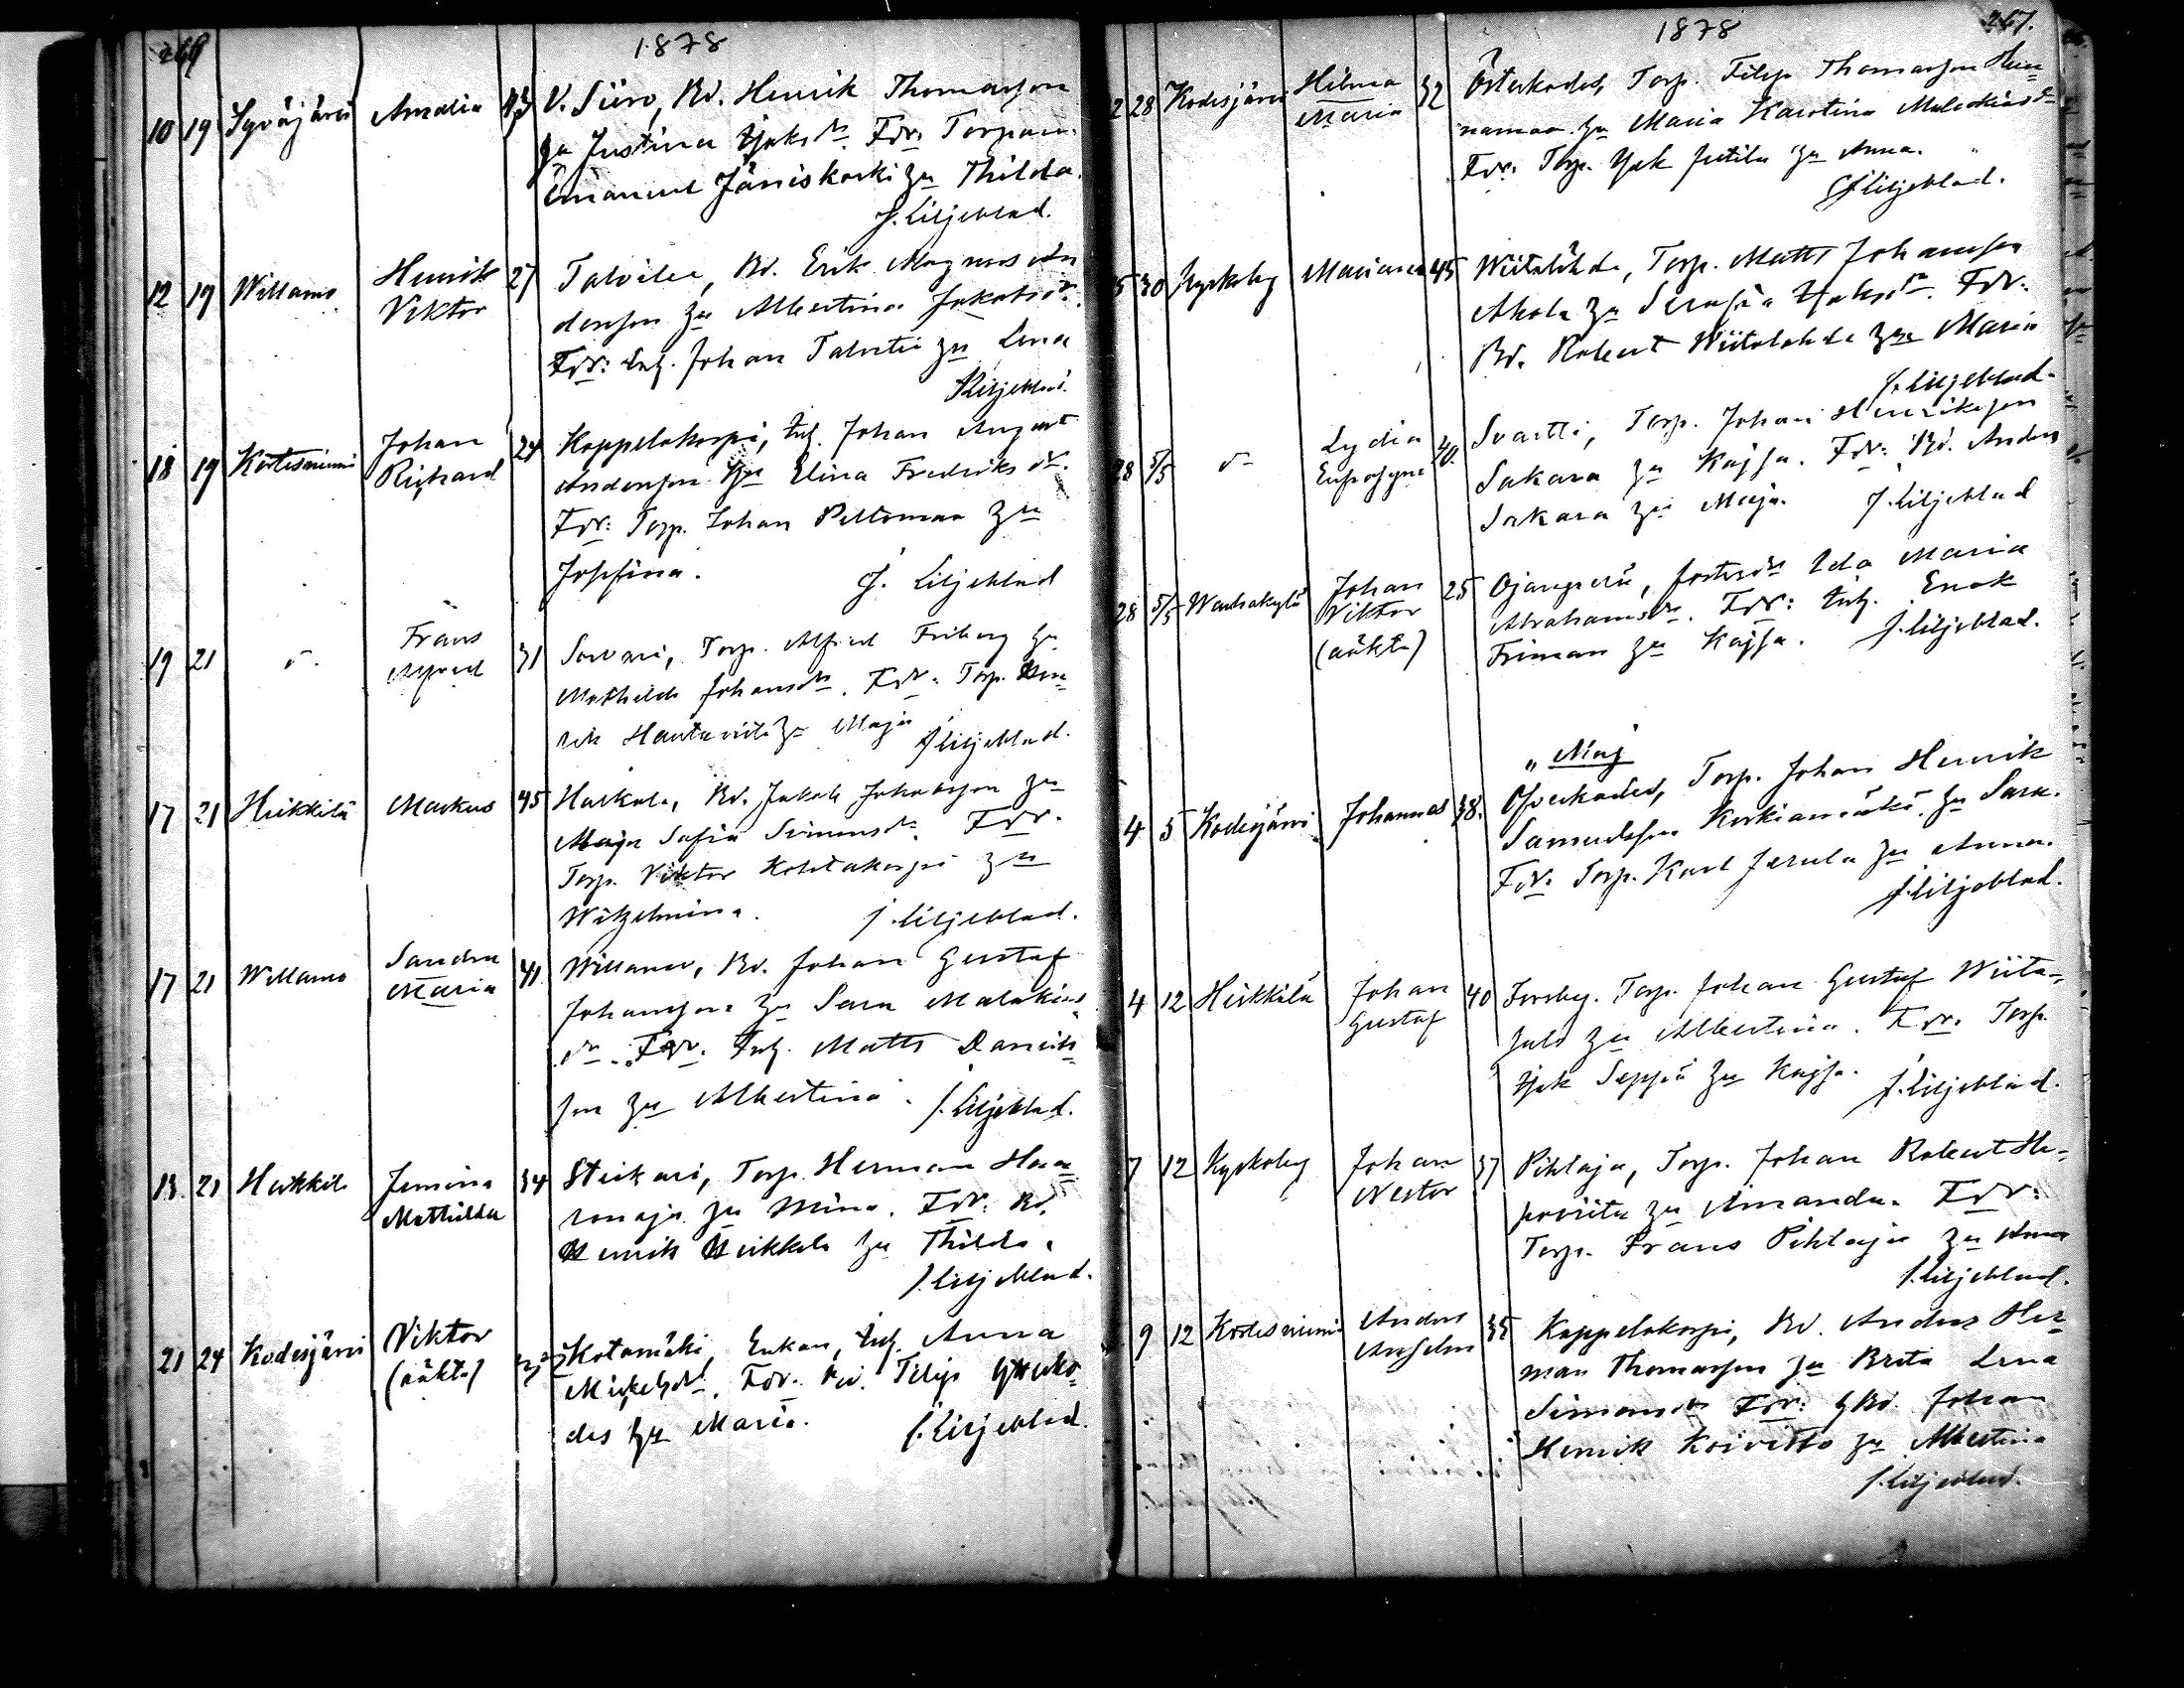 1878
10 19 Syväjärvi Amalia 43 V. Siiro, Bd. Henrik Thomasson
hu Justina Isaksdr. Fdr: Torpare
Emanuel Jäniskoski hu Thilda.
J. Liljeblad.
12 19 Willamo Henrik Viktor 27 Talvitie, Bd. Erik Magnus An
dersson hu Albertina Jakobsdr.
Fdr: Inh. Johan Talvitie hu Lena
J Liljeblad.
18 19 Kortesniemi Johan Richard 24 Koppelokorpi, Inh. Johan August
Andersson hu Elina Fredriksdr.
Fdr: Torp. Johan Peltomaa hu
Josefina. J. Liljeblad
19 21 d:o Frans Alfred 31 Torp. Alfred Friberg hu
Mathilda Johansdr. Fdr: Torp. Hen
rik Hautaviita hu Maja J Liljeblad.
17 21 Heikkilä Markus 45 Harkola, Bd. Jakob Jakobsson hu
Maja Sofia Simonsdr. Fdr.
Torp. Viktor Kohtakorpi hu
Wilhelmina. J. Liljeblad.
17 21 Willamo Sandra Maria 41 Willamo, Bd. Johan Gustaf
Johansson hu Sara Malakias
dr. Fdr. Inh. Matts Daniels
son hu Albertina. J. Liljeblad.
13 21 Heikkilä Jemina Mathilda 34 Steikari, Torp. Herman Haa
ranoja hu Mina. Fdr. Bd.
Henrik Heikkilä hu Thilda.
J. Liljeblad.
21 24 Kodesjärvi Viktor (oäkta) Kotamäki, Enkan, Inh. Anna
Mickelsdr. Fdr. Bd. Filip Ytterko
des hu Maria. J. Liljeblad.
1878 267.
2 28 Kodesjärvi Hilma Maria 32 Österkodes, Torp. Filip Thomasson Hun
namaa hu Maria Karolina Malakiasdr
Fdr. Torp. Isak Jutila hu Anna.
J Liljeblad.
5 30 Kyrkoby Mariana 45 Wiitalähde, Torp. Matts Johansson
Ahola hu Serafia Isaksdr. Fdr.
Bd. Robert Wiitalähde hu Maria
J. Liljeblad.
28 5/5 d:o Lydia Eufrosyne 40. Svartti, Torp. Johan Henriksson
Sakara hu Kajsa. Fdr: Bd. Anders
Sakara hu Maja. J. Liljeblad
28 5/5 Wanhakylä Johan Viktor (oäkta) 25 Ojanperä, fosterdr Ida Maria
Abrahamsdr. Fdr: Inh. Enok
Friman hu Kajsa. J. Liljeblad.
" Maj
4 5 Kodesjärvi Johannes 38. Öfverkodes, Torp. Johan Henrik
Samuelsson Korkiamäki hu Sara.
Fdr. Torp. Karl Jerula hu Anna.
J. Liljeblad.
4 12 Heikkilä Johan Gustaf 40 Forsby. Torp. Johan Gustaf Wiita-
salo hu Albertina. Fdr. Torp.
Isak Seppä hu Kajsa. J. Liljeblad.
7 12 Kyrkoby Johan Nestor 37 Pihlaja, Torp. Johan Robert He-
poviita hu Amanda. Fdr:
Torp. Frans Pihlaja hu Anna
J. Liljeblad.
9 12 Kortesniemi Anders Anselm 35 Koppelokorpi, Bd. Anders Her
man Thomasson hu Brita Lena
Simonsdr Fdr: Bd. Johan
Henrik Koivisto hu Albertina
J. Liljeblad.